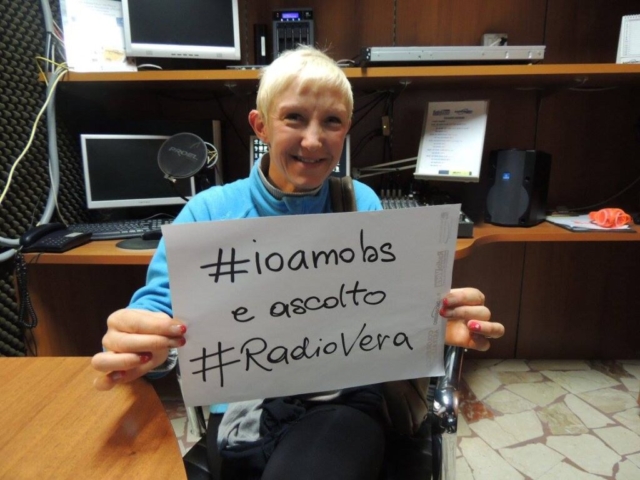 #ioamobs
e ascolto
#RadioVera